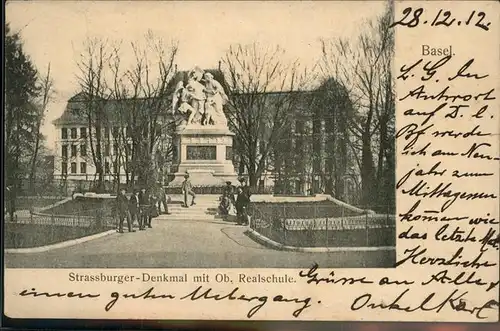 28.12.12.
Basel.
L. G. Der
Antwort
auf D. l.
Bf werde
ich am Neu
jahr zum
Mittagessen
kommen wie
das letzte Mal
Herzliche
Strassburger-Denkmal mit Ob. Realschule.
Grüsse an Alle &
einen guten Uebergang.
Onkel Karl